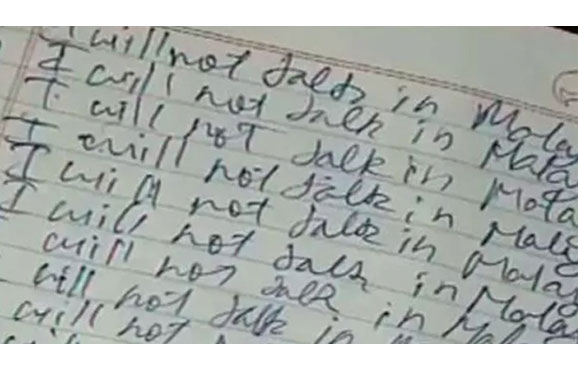 I will not talk in Mala
I will not talk in Mala
I will not talk in Mala
I will not talk in Mala
I will not talk in Malay
I will not talk in Malay
will not talk in Mala
will not talk in
will not